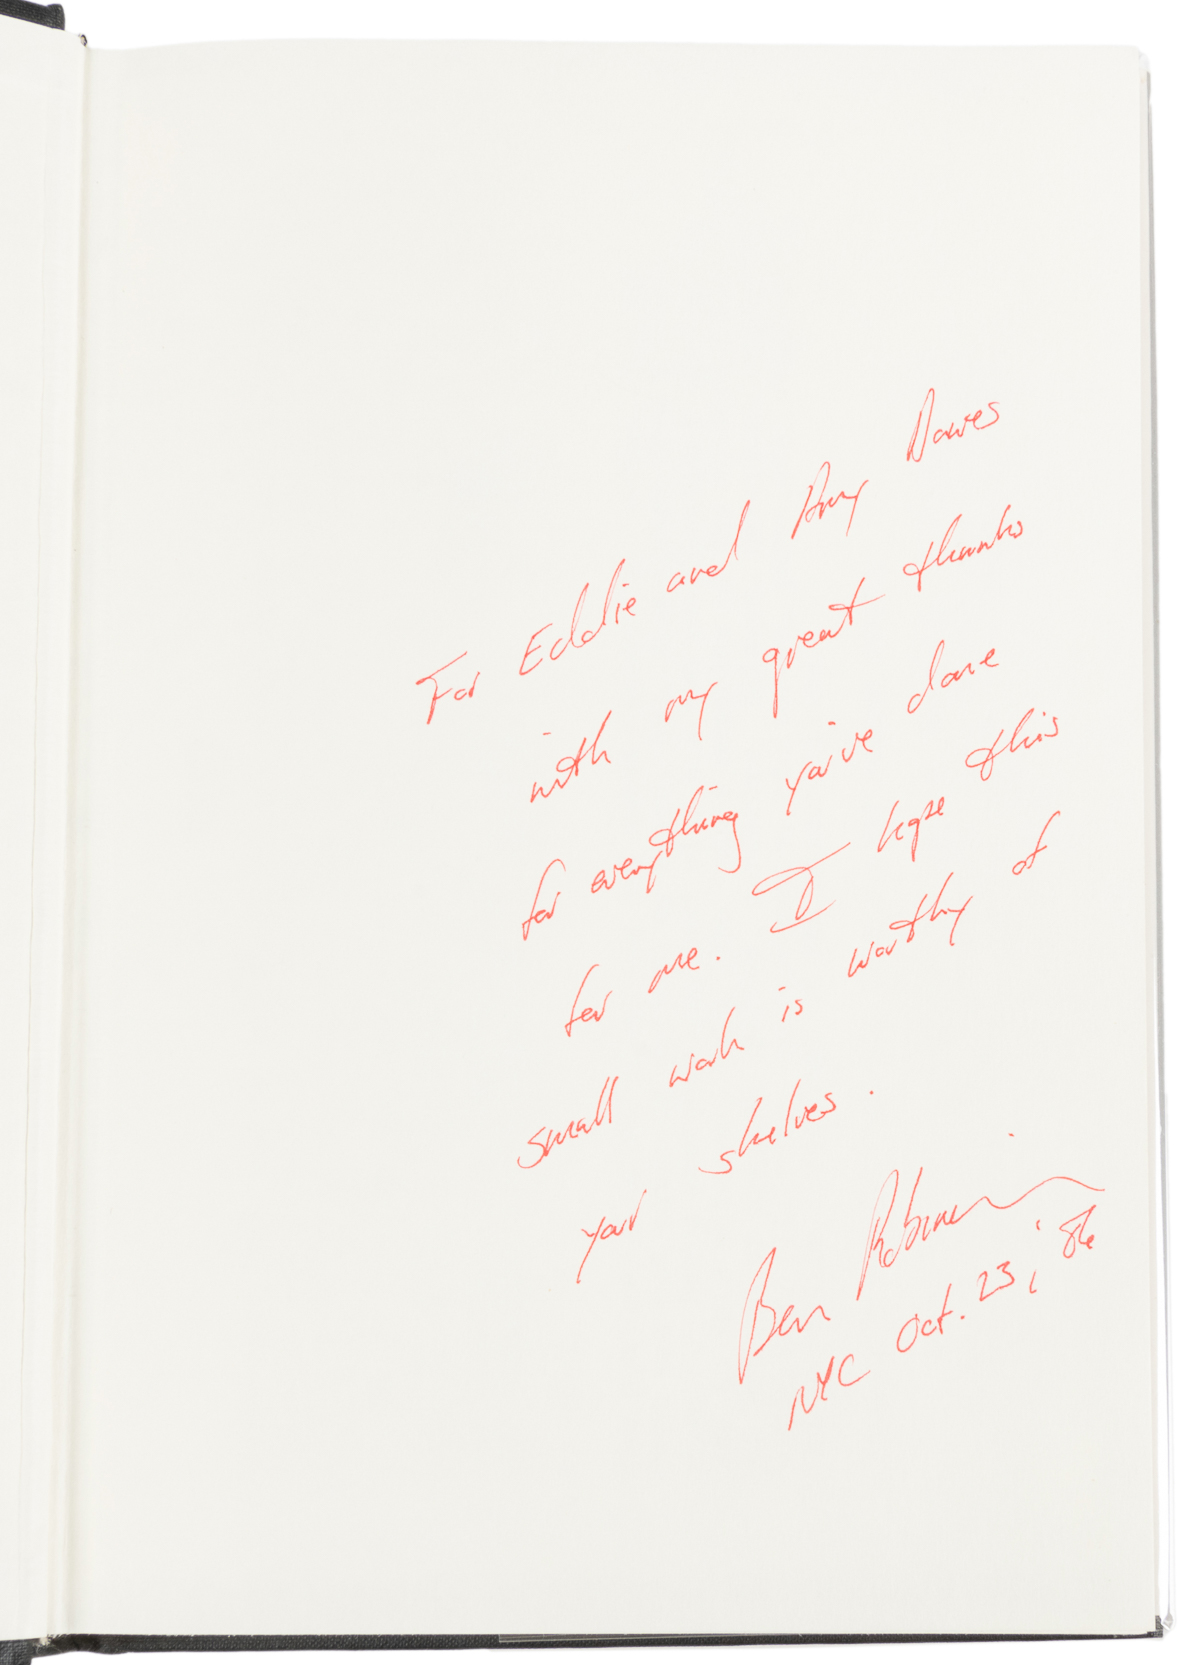 For Eddie and Amy Dawes
with my great thanks
for everything you've done
for me. I hope this
small work is worthy of
your shelves.
Ben Robinson
NYC Oct. 23, '86